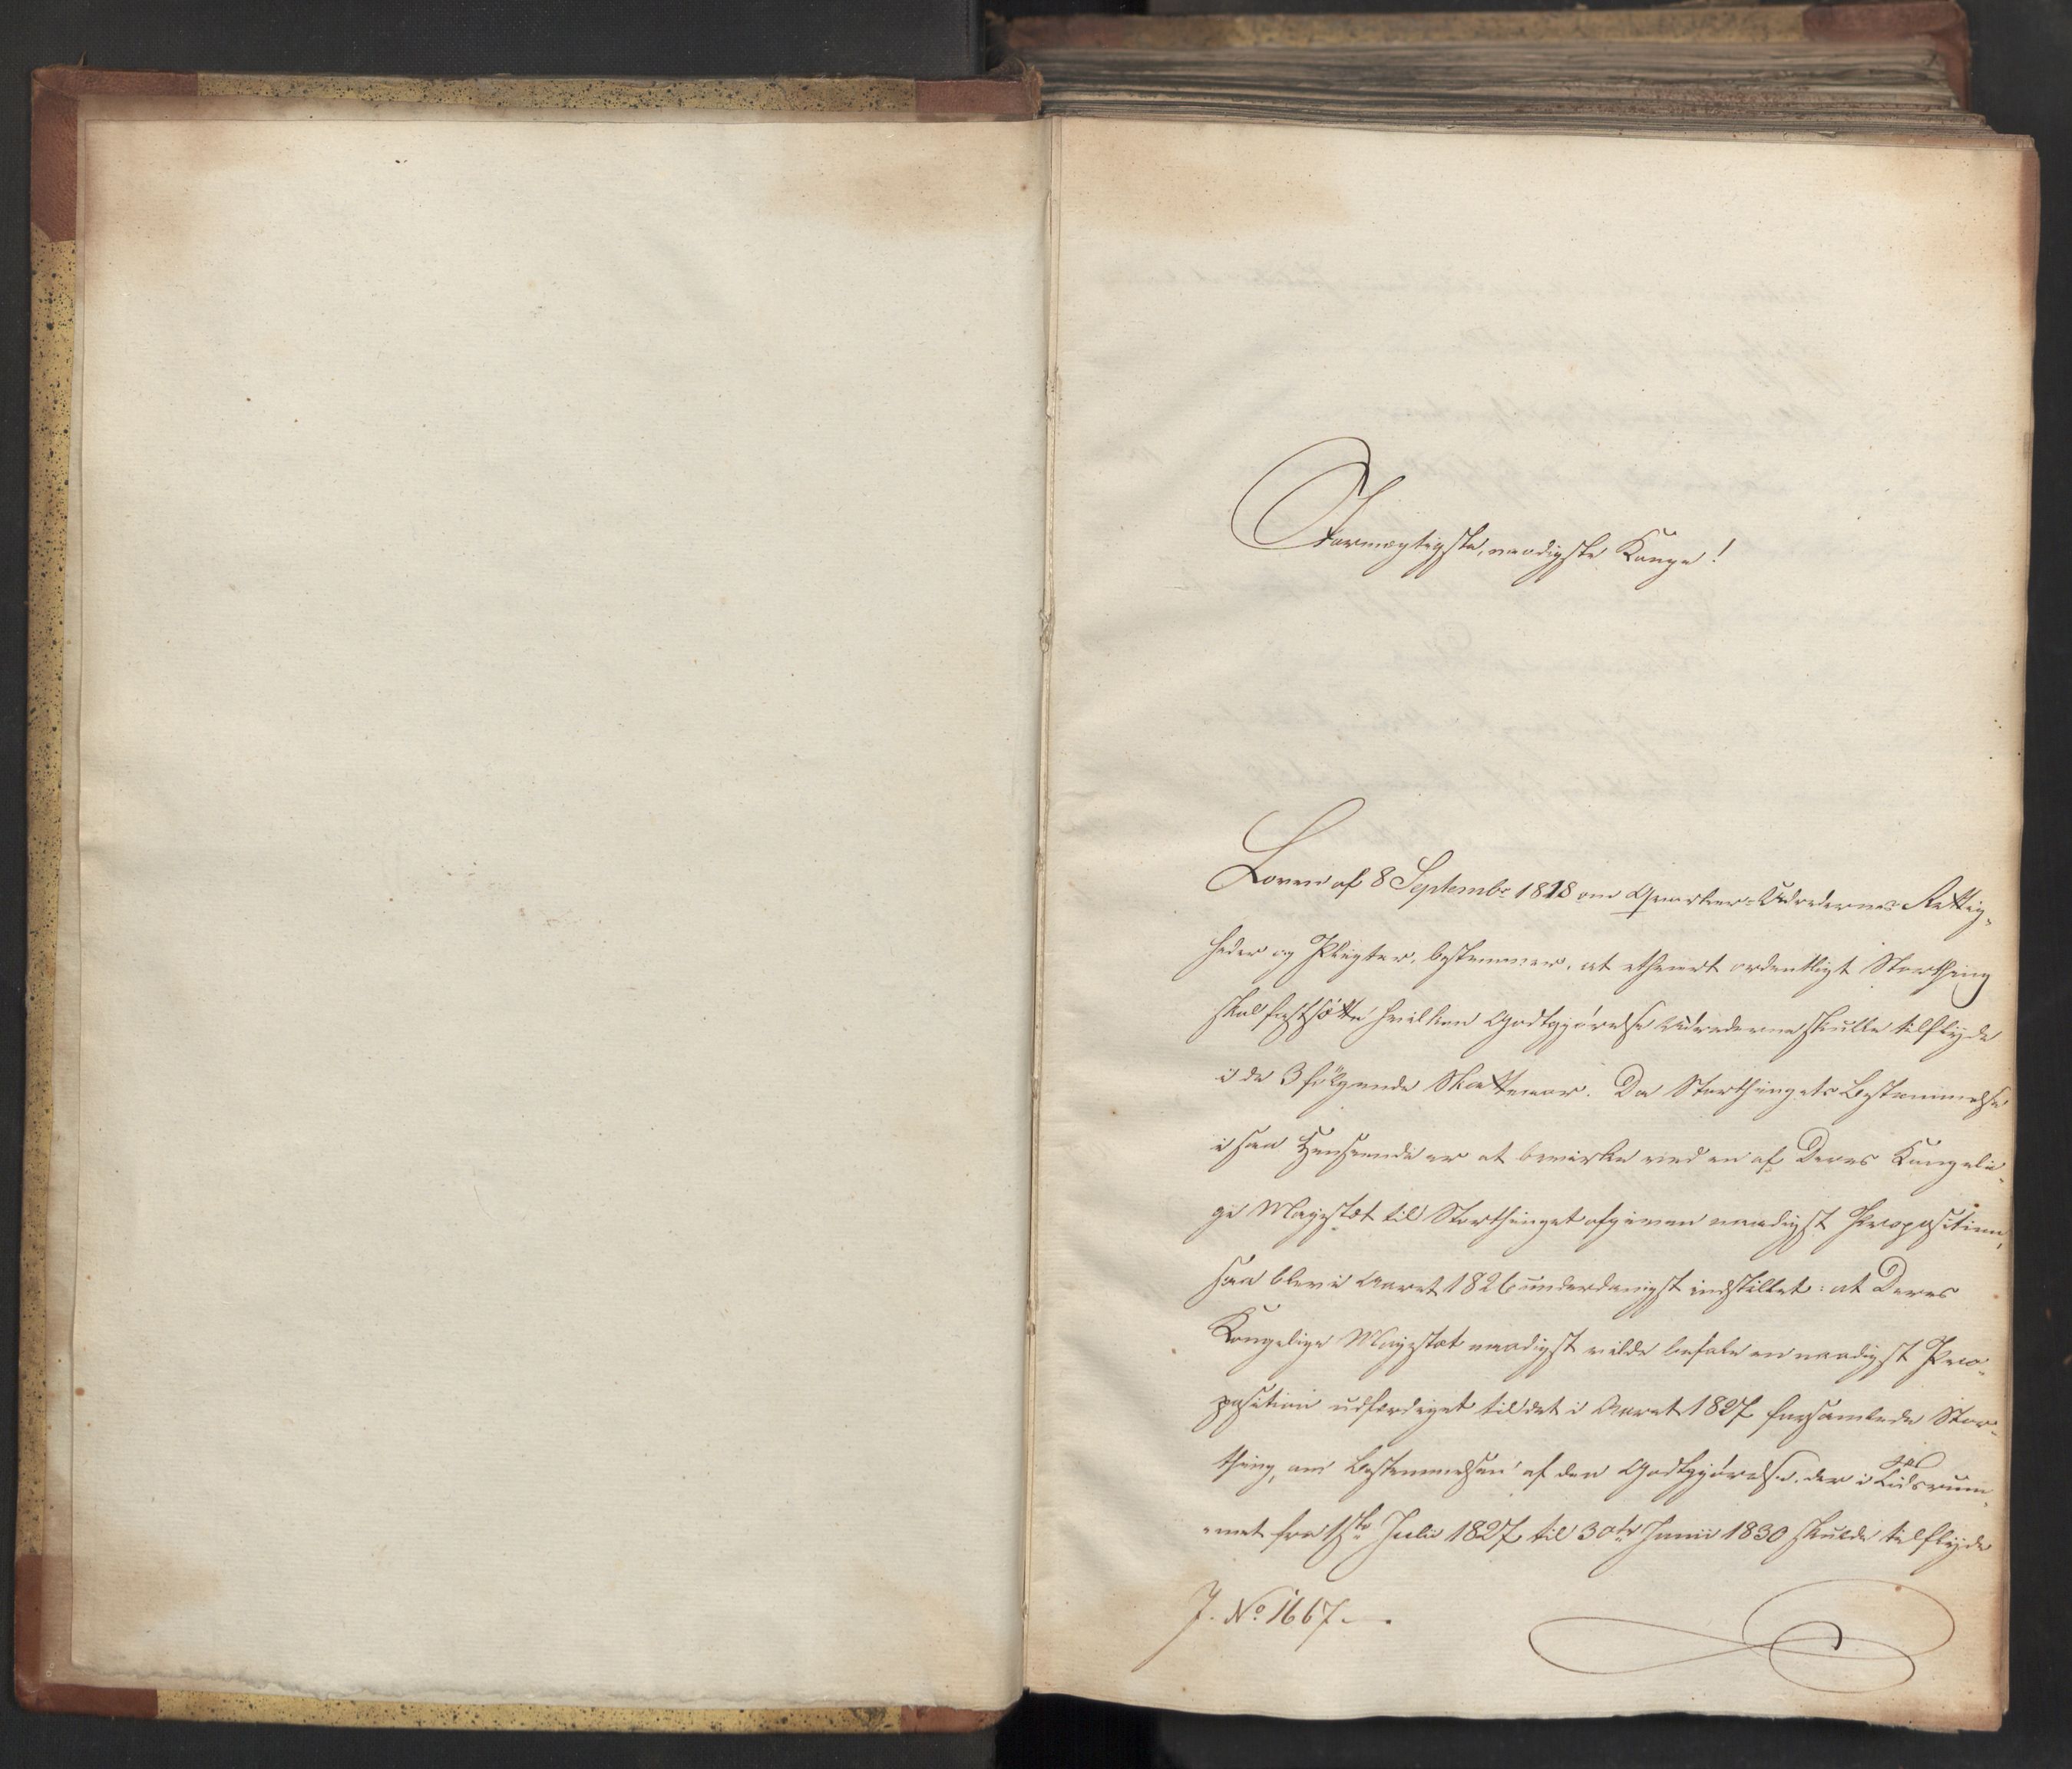 Stormægtigste, naadigste Konge!
Loven af 8 Septembr 1818 om Qvarteer-Udredernes Rettig-
heder og Pligter, bestemmer, at ethvert ordentligt Storthing
skal fastsætte hvilken Godtgjörelse Udrederne skulle tilflyde
i de 3 fölgende Skatteaar. Da Storthingets Bestemmelse
i saa Henseende er at bevirke ved en af Deres Kongeli-
ge Majestæt til Storthinget afgiven naadigst Proposition,
saa blev i Aaret 1826 underdanigst indstillet: at Deres
Kongelige Majestæt naadigst vilde befale en naadigst Pro-
position udfærdiget til det i Aaret 1827 forsamlede Stor-
thing, om Bestemmelsen af den Godtgjörelse, der i Tidsrum-
met fra 1ste Julii 1827 til 30te Junii 1830 skulde tilflyde
J. No 1667.